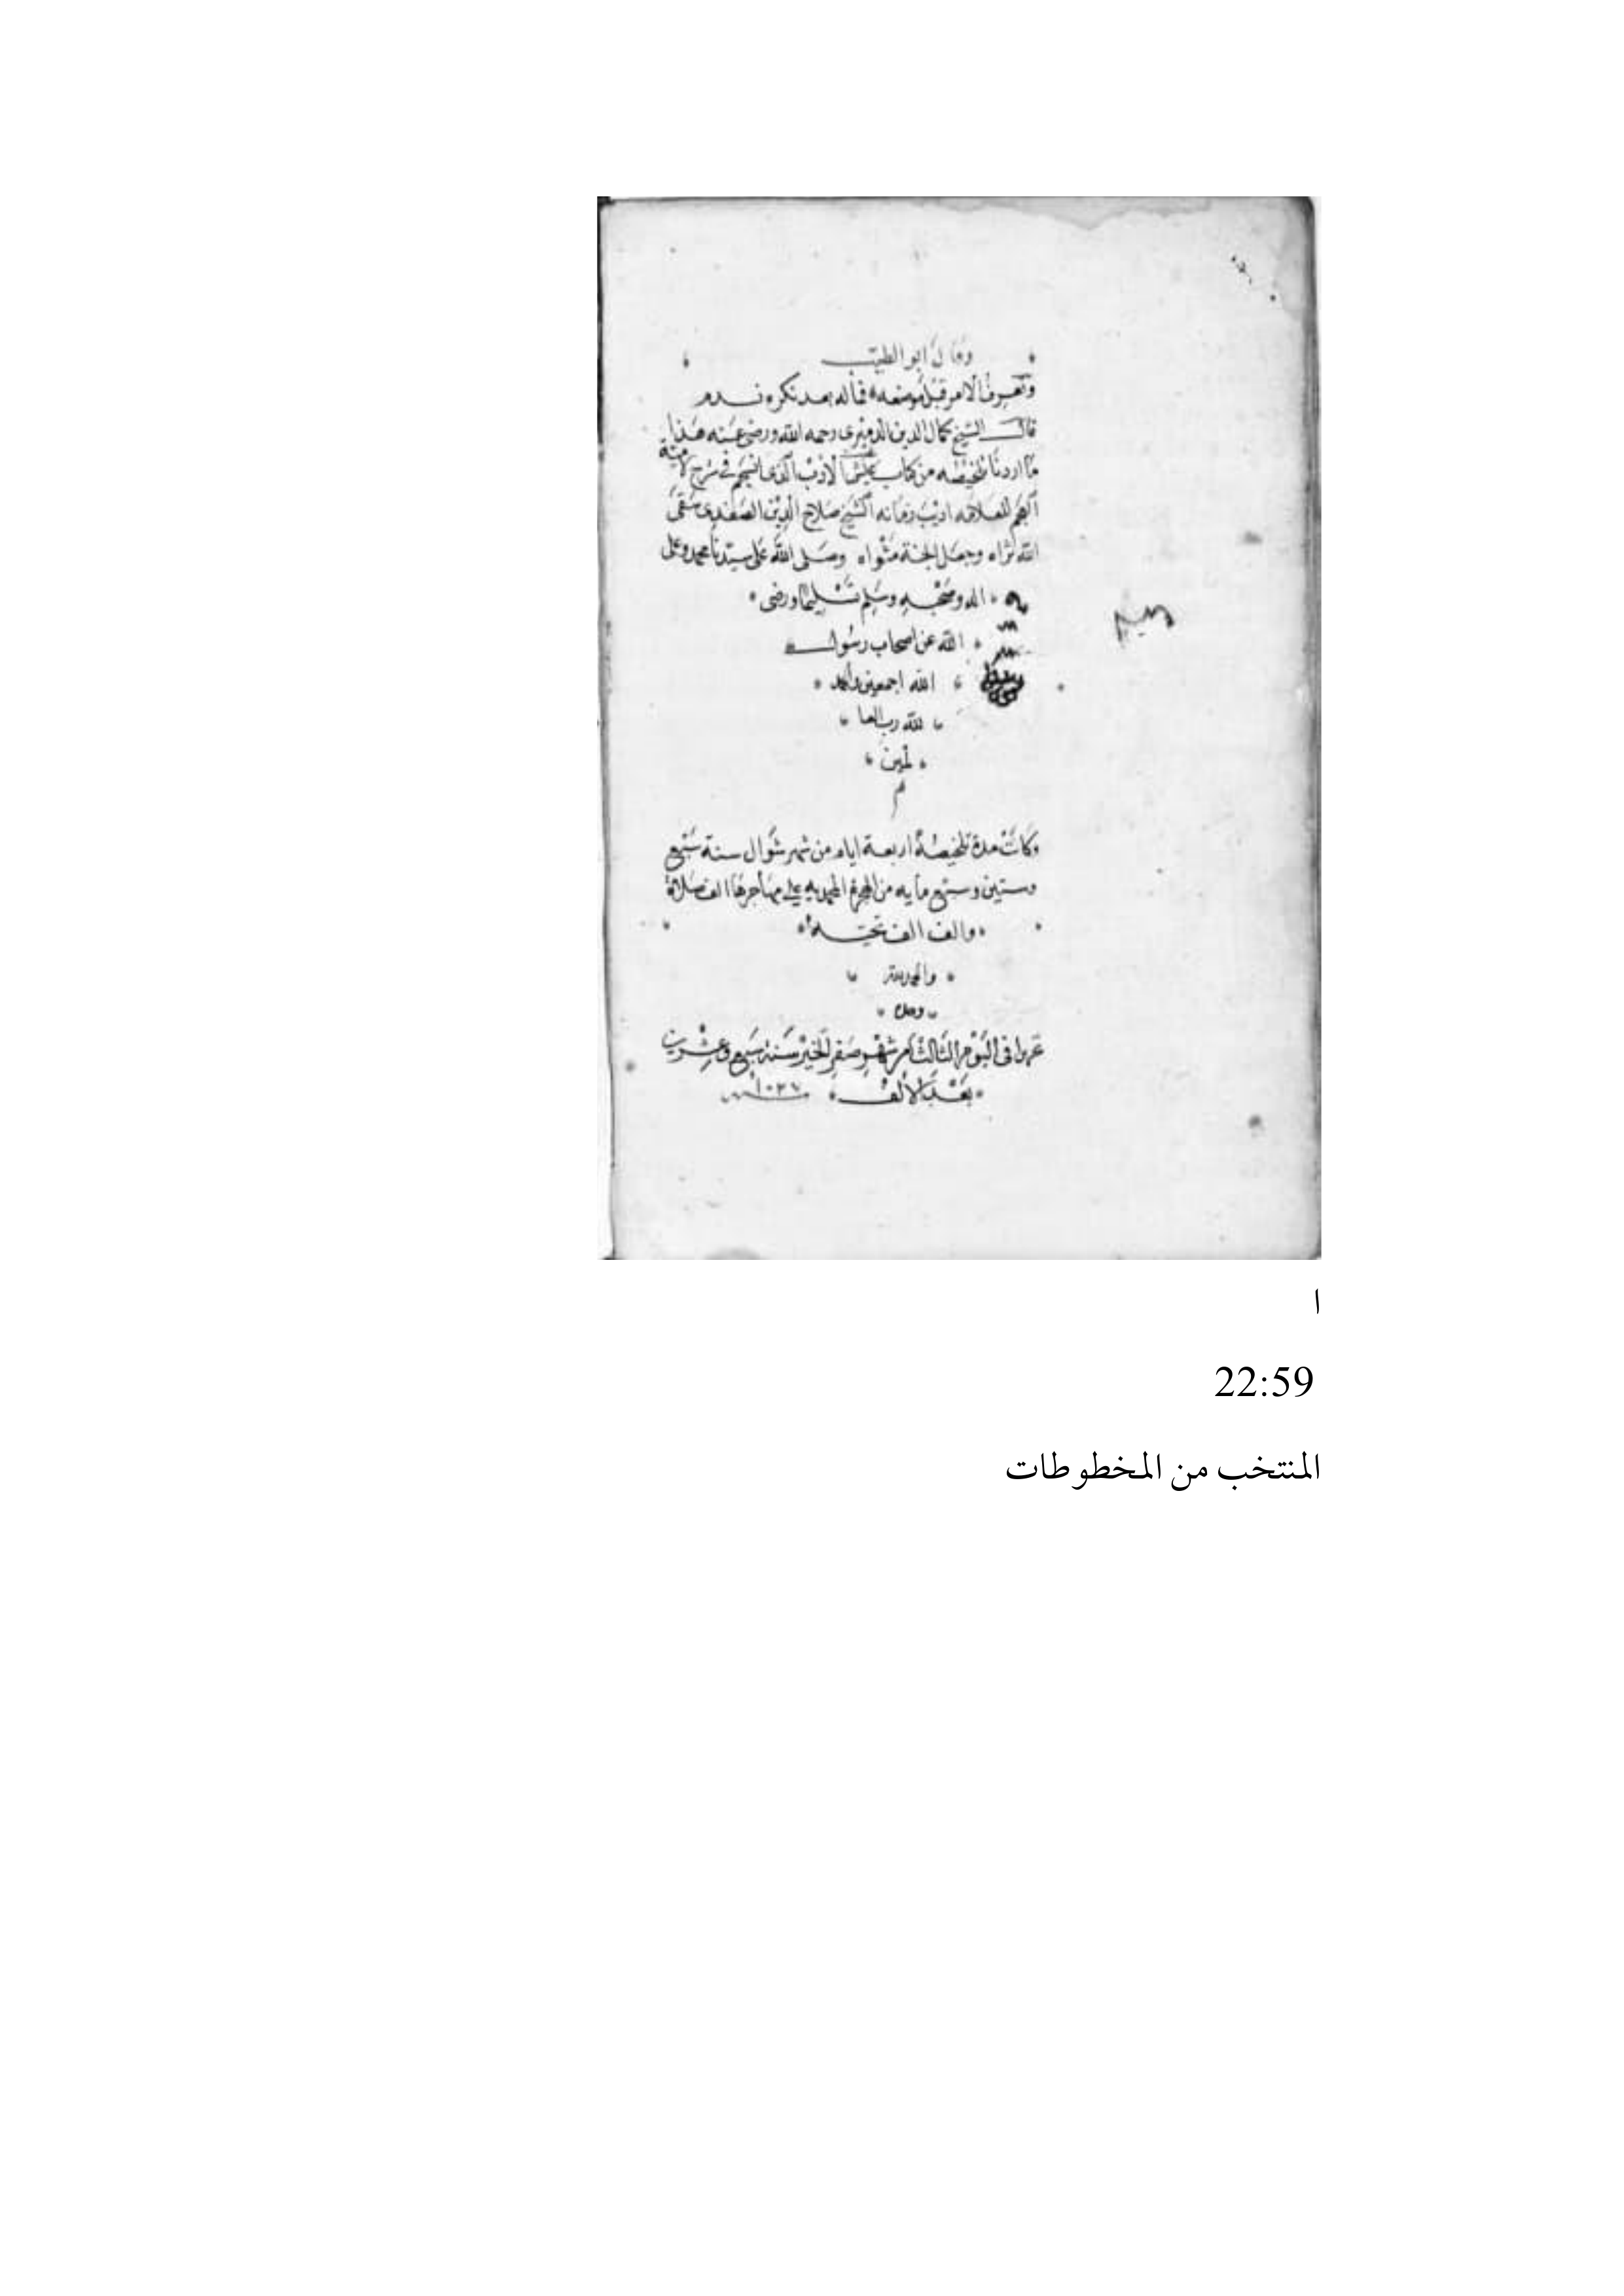 وقال ابو الطيب
وتعرف الامر قبل موضعه فماله بعد نكره ندم
قال الشيخ كمال الدين الدميري رحمه الله ورضى عنه هذا
ما اردنا تلخيصه من كتاب غيث الادب الذى انسجم في شرح لامية
العجم للعلامه اديب زمانه الشيخ صلاح الدين الصفدى سقى
الله ثراه وجعل الجنة مثواه وصلى الله على سيدنا محمد وعلى
اله وصحبه وسلم تسليما ورضى
الله عن اصحاب رسول
الله اجمعين والحمد
لله رب العا
لمين
م
وكانت مدة تلخيصه اربعة ايام من شهر شوال سنة سبع
وستين وسبع مايه من الهجرة المحمديه على مهاجرها الف صلاة
والف الف تحية
والحمد لله
وحده
فى اليوم الثالث من شهر صفر الخير سنة سبع وعشرين
بعد الالف ١٠٢٧
ا
22:59
المنتخب من المخطوطات